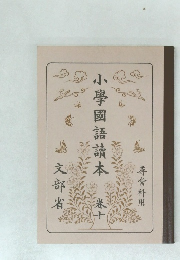 小學國語讀本 卷十
尋常科用
文部省